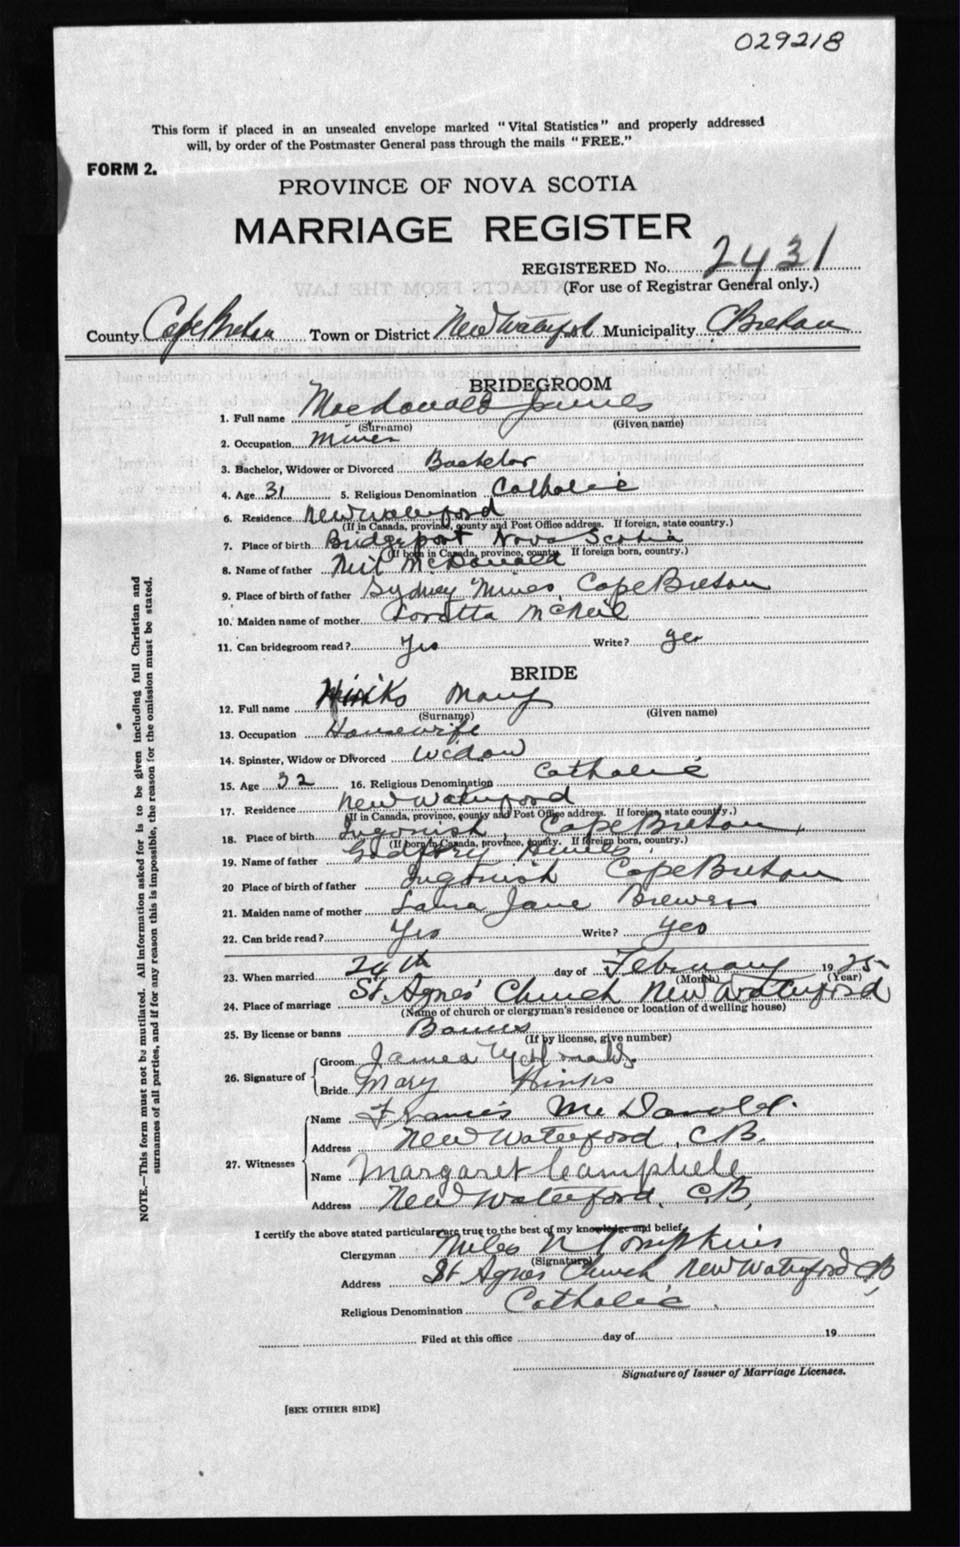 029218
This form if placed in an unsealed envelope marked "Vital Statistics" and properly addressed
will, by order of the Postmaster General pass through the mails "FREE."
FORM 2.
PROVINCE OF NOVA SCOTIA
MARRIAGE REGISTER
REGISTERED No. 2431
(For use of Registrar General only.)
County Cape Breton Town or District New Waterford Municipality C Breton
BRIDEGROOM
1. Full name MacDonald James
(Surname) (Given name)
2. Occupation Miner
3. Bachelor, Widower or Divorced Bachelor
4. Age 31 5. Religious Denomination Catholic
6. Residence New Waterford
(If in Canada, province, county and Post Office address. If foreign, state country.)
7. Place of birth Bridgeport Nova Scotia
(If born in Canada, province, county. If foreign born, country.)
8. Name of father Neil McDonald
9. Place of birth of father Sydney Mines, Cape Breton
10. Maiden name of mother Loretta McNeil
11. Can bridegroom read? Yes Write? yes
BRIDE
12. Full name Hinks Mary
(Surname) (Given name)
13. Occupation Housewife
14. Spinster, Widow or Divorced Widow
15. Age 32 16. Religious Denomination Catholic
17. Residence New Waterford
(If in Canada, province, county and Post Office address. If foreign, state country.)
18. Place of birth Ingonish, Cape Breton,
(If born in Canada, province, county. If foreign born, country.)
19. Name of father Godfrey
20 Place of birth of father Ingonish Cape Breton
21. Maiden name of mother Jane Brewer
22. Can bride read? Yes Write? Yes
23. When married 24th day of February 1925
(Month) (Year)
24. Place of marriage St. Agnes' Church New Waterford
(Name of church or clergyman's residence or location of dwelling house)
25. By license or banns Banns
(If by license, give number)
26. Signature of Groom James
Bride Mary Hinks
27. Witnesses Name Francis McDonald.
Address New Waterford, C.B.
Name Margaret Campbell
Address New Waterford, C.B,
I certify the above stated particulars are true to the best of my knowledge and belief,
Clergyman Miles N Tompkins
(Signature)
Address St Agnes Church, New Waterford CB,
Religious Denomination Catholic.
Filed at this office day of 19
Signature of Issuer of Marriage Licenses.
[SEE OTHER SIDE]
NOTE.—This form must not be mutilated. All information asked for is to be given including full Christian and
surnames of all parties, and if for any reason this is impossible, the reason for the omission must be stated.